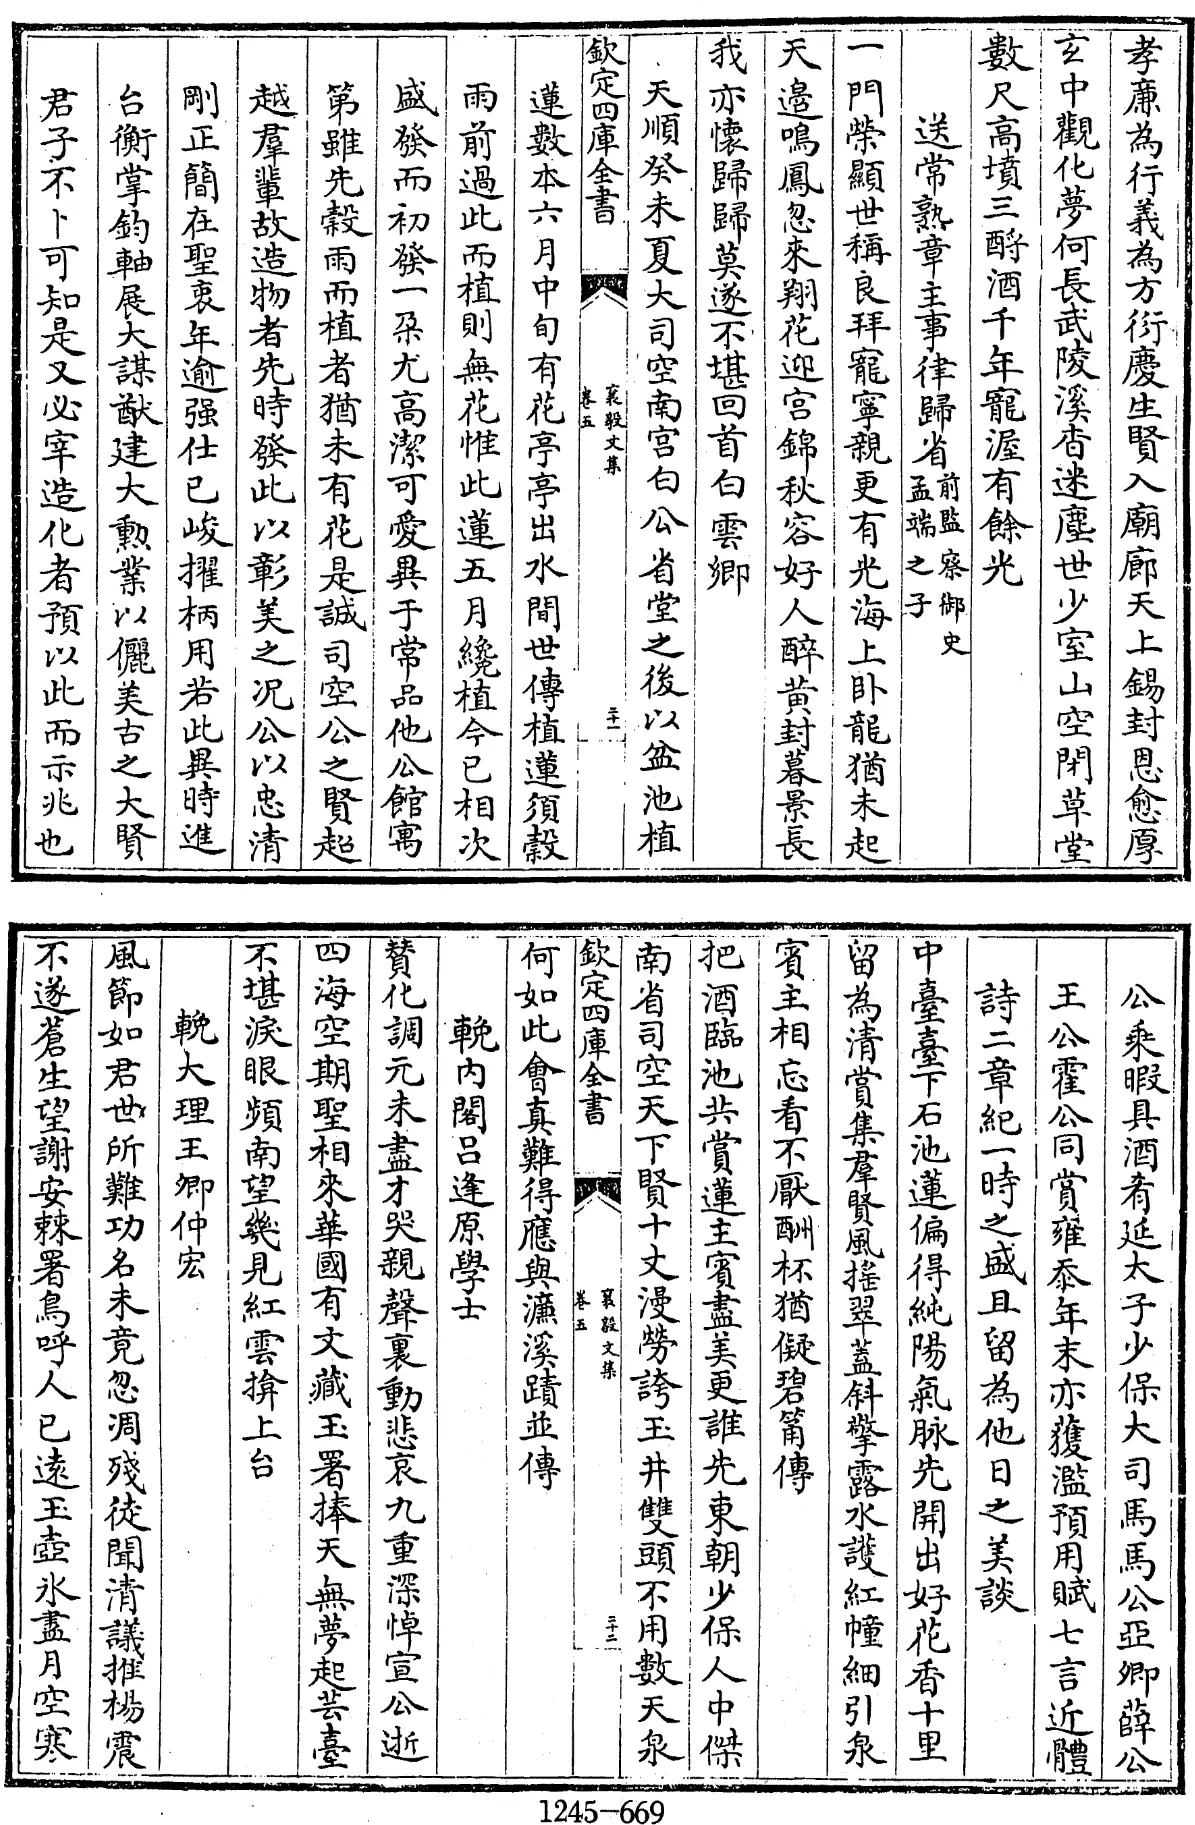 孝廉為行義為方衍慶生賢入廟廊天上錫封恩愈厚
玄中觀化夢何長武陵溪杳迷塵世少室山空閉草堂
數尺高墳三酹酒千年寵渥有餘光
送常熟章主事律歸省前監察御史孟端之子
一門榮顯世稱良拜寵寧親更有光海上卧龍猶未起
天邉鳴鳳忽來翔花迎宫錦秋容好人醉黄封暮景長
我亦懷歸歸莫遂不堪回首白雲鄉
天順癸未夏大司空南宫白公省堂之後以盆池植
欽定四庫全書
襄毅文集
卷五
二十一
蓮數本六月中旬有花亭亭出水間世傳植蓮須穀
雨前過此而植則無花惟此蓮五月纔植今已相次
盛發而初發一朶尤高潔可愛異于常品他公館寓
第雖先穀雨而植者猶未有花是誠司空公之賢超
越羣輩故造物者先時發此以彰美之况公以忠清
剛正簡在聖衷年逾强仕已峻擢柄用若此異時進
台衡掌鈞軸展大謀猷建大勲業以儷美古之大賢
君子不卜可知是又必宰造化者預以此而示兆也
公乘暇具酒肴延太子少保大司馬馬公亞卿薛公
王公霍公同賞雍忝年末亦獲濫預用賦七言近體
詩二章紀一時之盛且留為他日之美談
中臺臺下石池蓮偏得純陽氣脉先開出好花香十里
留為清賞集羣賢風摇翠蓋斜擎露水護紅幢細引泉
賓主相忘看不厭酬杯猶儗碧筩傳
把酒臨池共賞蓮主賓盡美更誰先東朝少保人中傑
南省司空天下賢十丈漫勞誇玉井雙頭不用數天泉
欽定四庫全書
襄毅文集
卷五
二十二
何如此會真難得應與濂溪蹟並傳
輓内閣吕逢原學士
賛化調元未盡才哭親聲裏動悲哀九重深悼宣公逝
四海空期聖相來華國有文藏玉署捧天無夢起芸臺
不堪淚眼頻南望幾見紅雲揜上台
輓大理王卿仲宏
風節如君世所難功名未竟忽凋殘徒聞清議推楊震
不遂蒼生望謝安棘署烏呼人已遠玉壺氷盡月空寒
1245-669